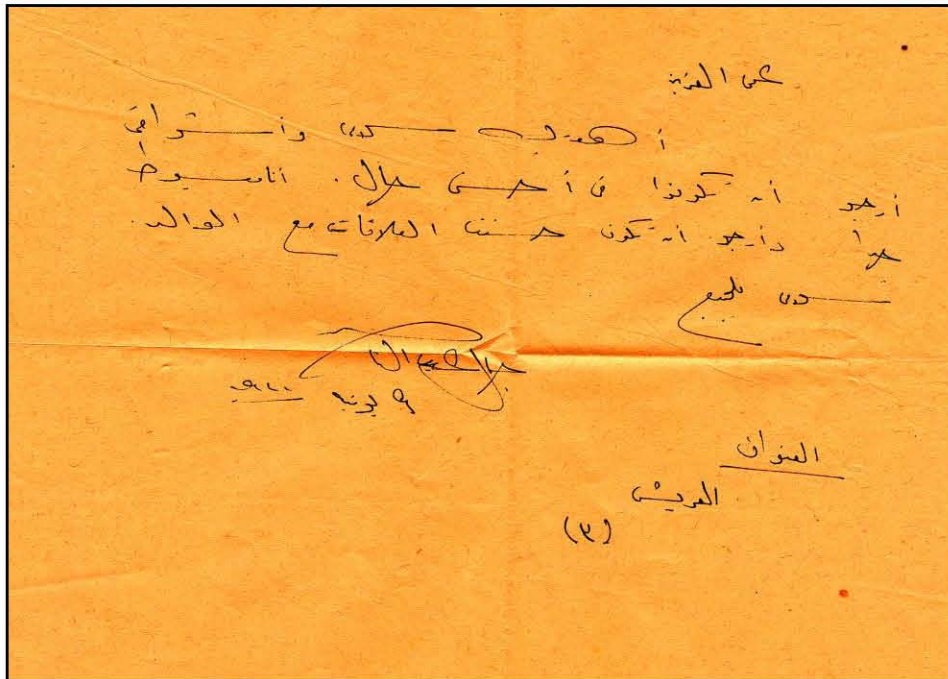 عمى العزيز
أهديك سلامى وأشواقى
أرجو أن تكونوا فى أحسن حال. أنا مبسوط
جدا وأرجو أن تكون حسنت العلاقات مع الوالد.
سلامى للجميع
يونيه
العنوان
العريش
(٣)